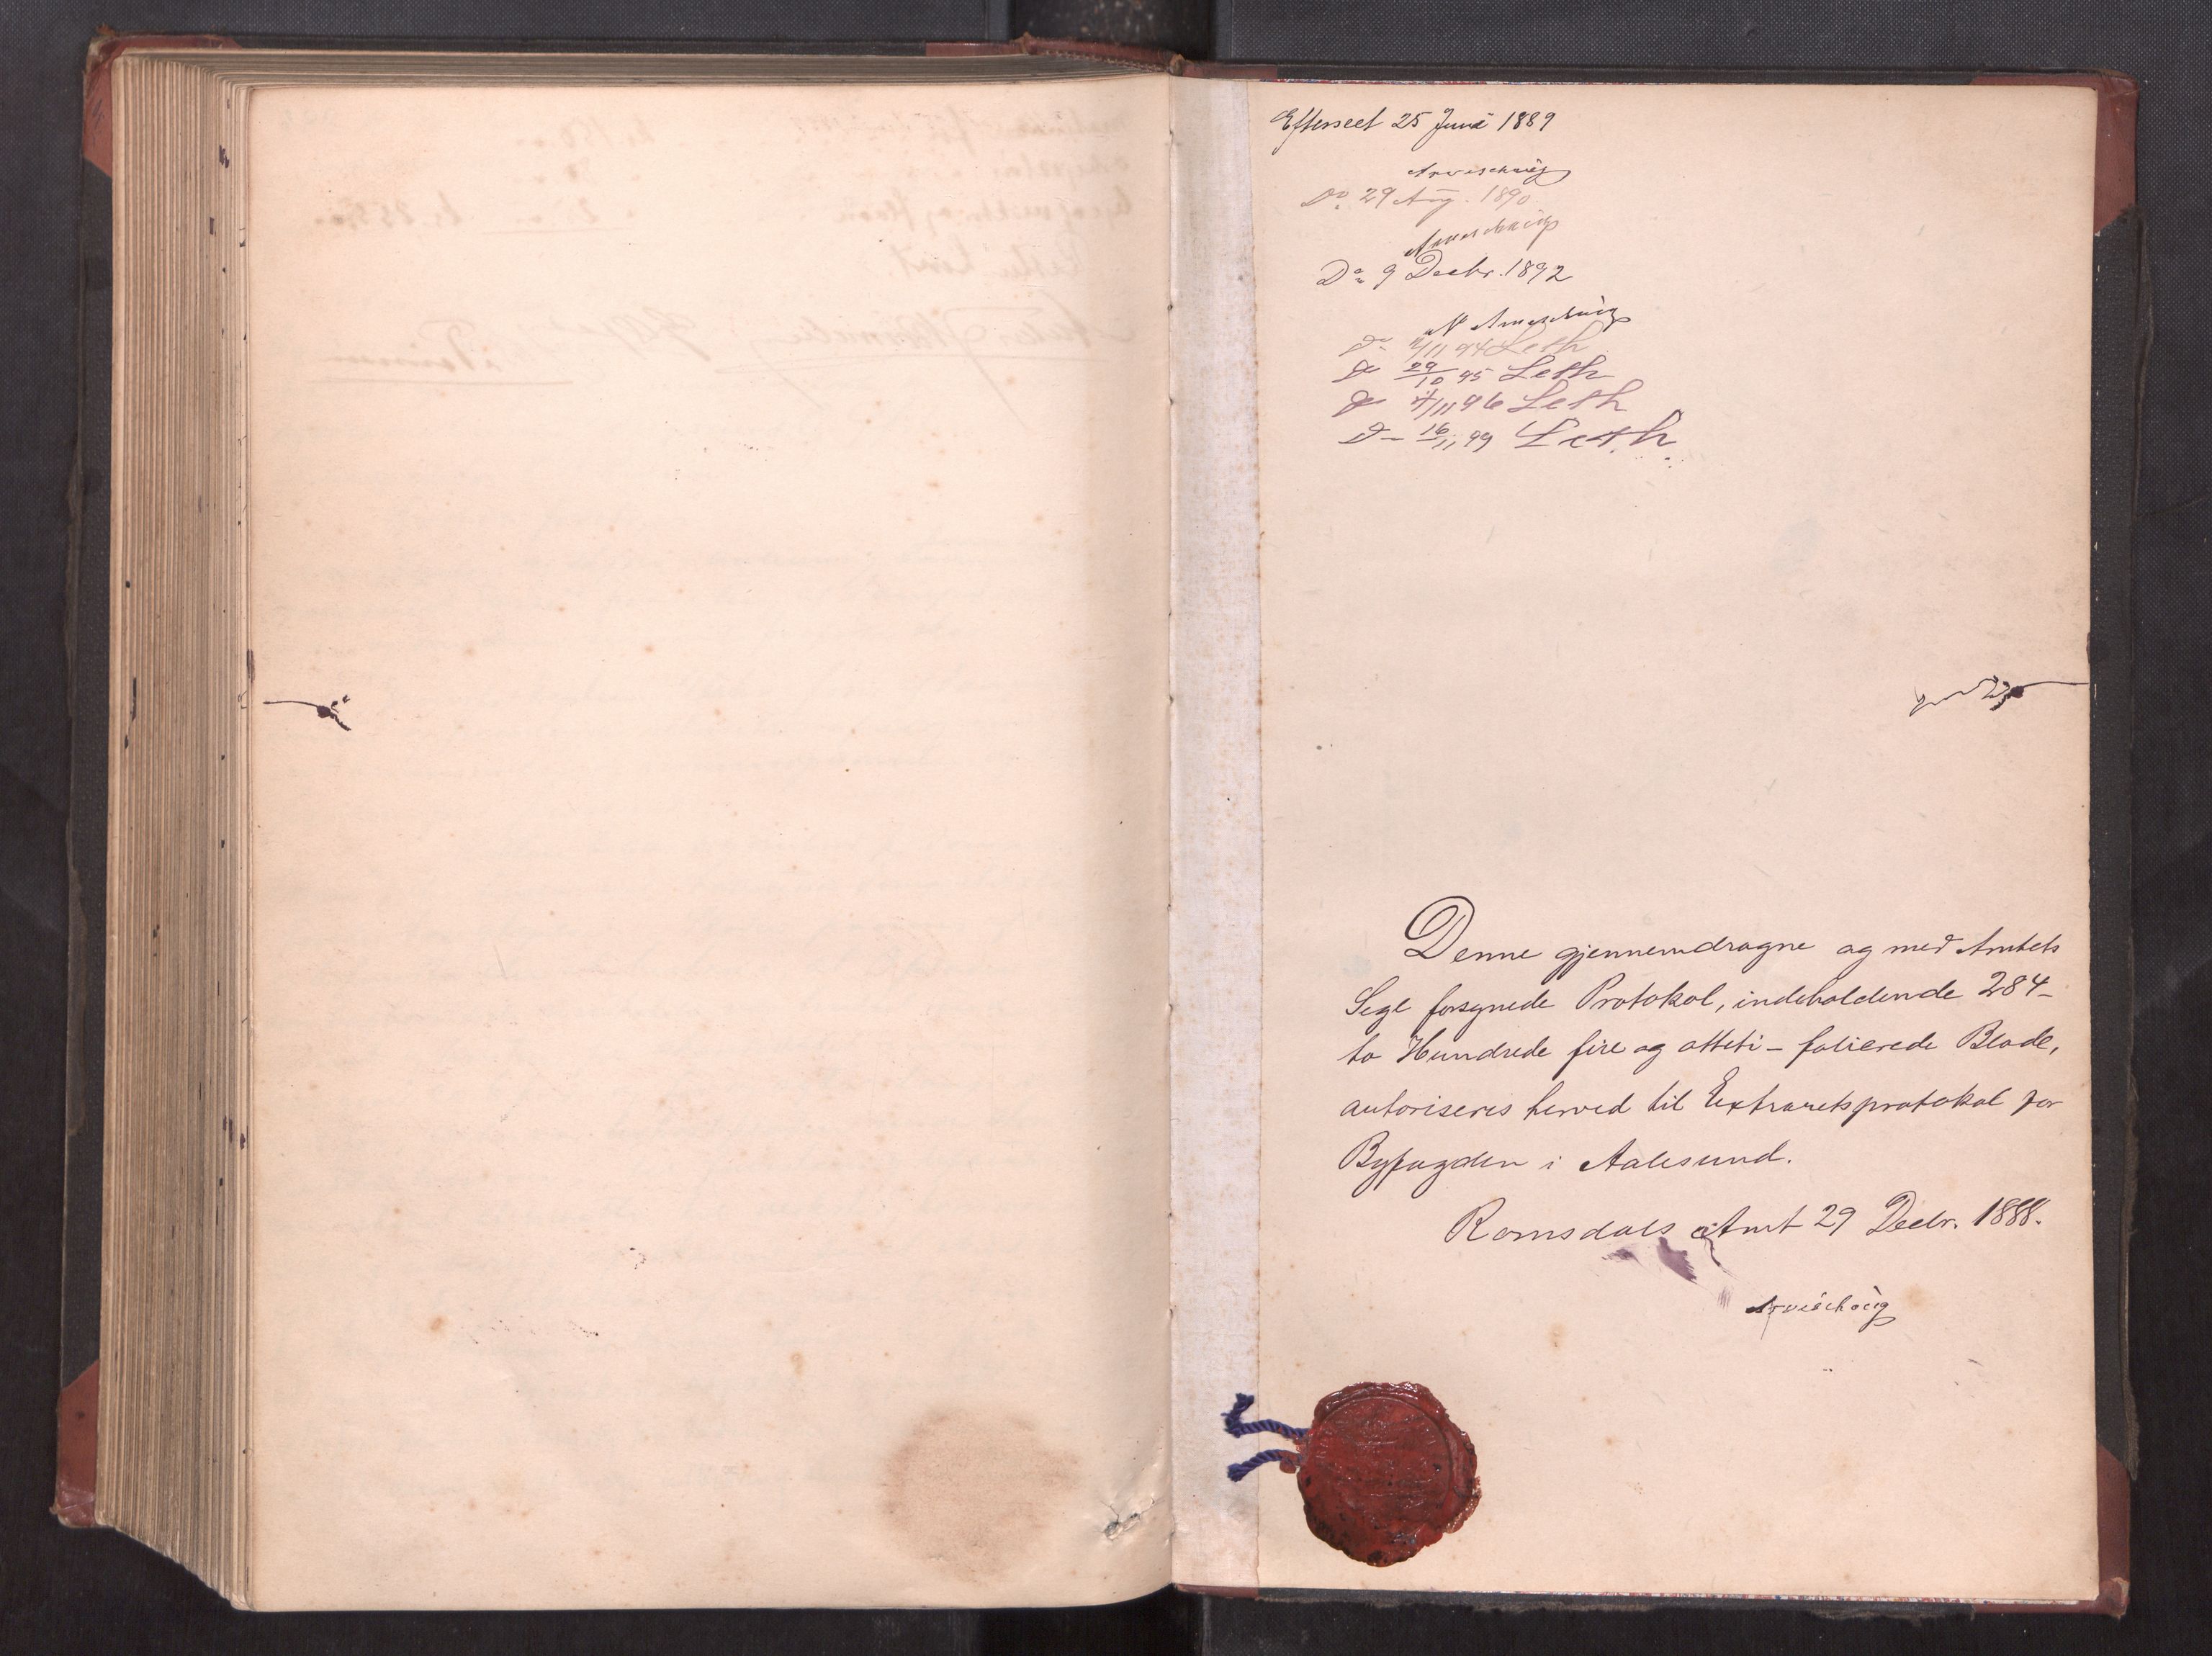 Efterseet 25 Juni 1889
Do. 29 Aug. 1890
Do 9 Decbr. 1892
Do 2/11 94 Leth
Do 29/10 95 Leth
Do 4/11 96 Leth
Do 16/11 99 Leth
Denne gjennemdragne og med Amtets
Segl forsynede Protokol, indeholdende 284 –
to Hundrede fire og otteti – folierede Blade,
autoriseres herved til Extraretsprotokol for
Byfogden i Aalesund.
Romsdals Amt 29 Decbr. 1888.